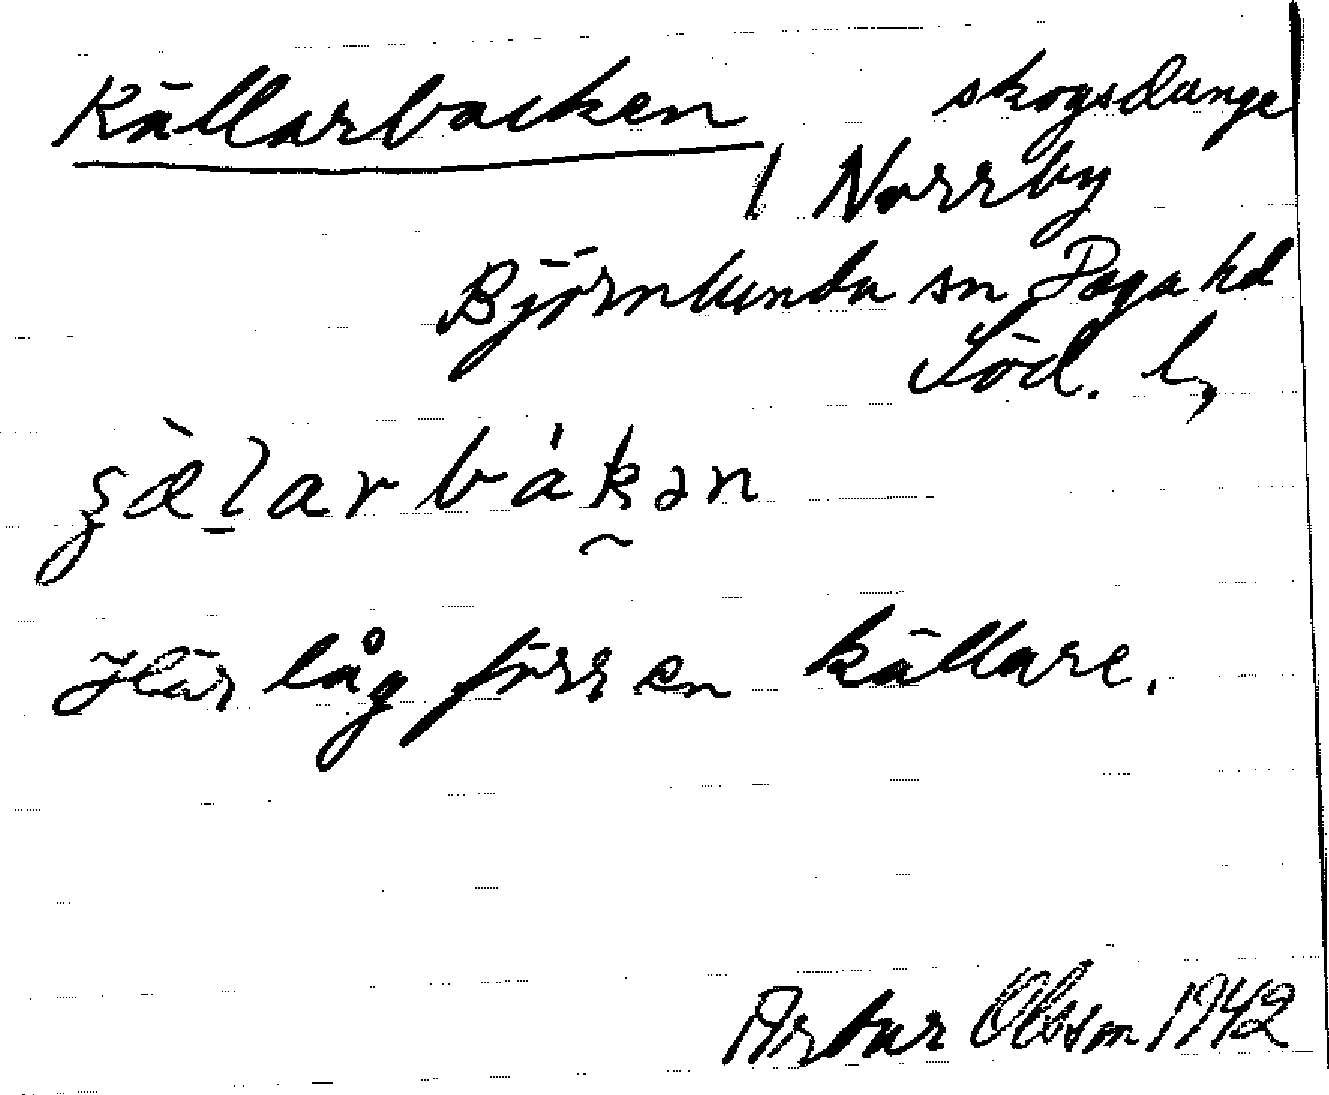 Källarbacken skogsdunge
/ Norrby
Björnlunda sn Daga hd
Söd. l,
Här låg förr en källare.
Arthur Olsson 1942